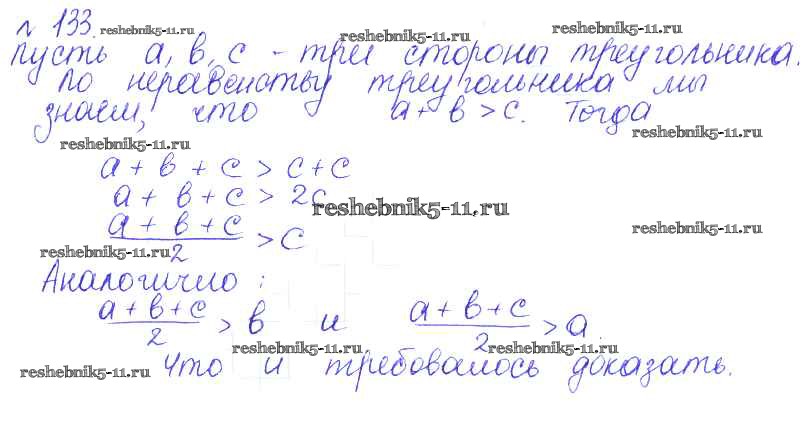 № 133. reshebnik5-11.ru reshebnik5-11.ru reshebnik5-11.ru
Пусть a, b, c - три стороны треугольника.
По неравенству треугольника мы
знаем, что a + b > c. Тогда
reshebnik5-11.ru reshebnik5-11.ru
a + b + c > c + c
a + b + c > 2c
reshebnik5-11.ru
(a + b + c)/2 > c
reshebnik5-11.ru reshebnik5-11.ru
Аналогично :
(a + b + c)/2 > b и (a + b + c)/2 > a
reshebnik5-11.ru reshebnik5-11.ru
reshebnik5-11.ru Что и требовалось доказать.